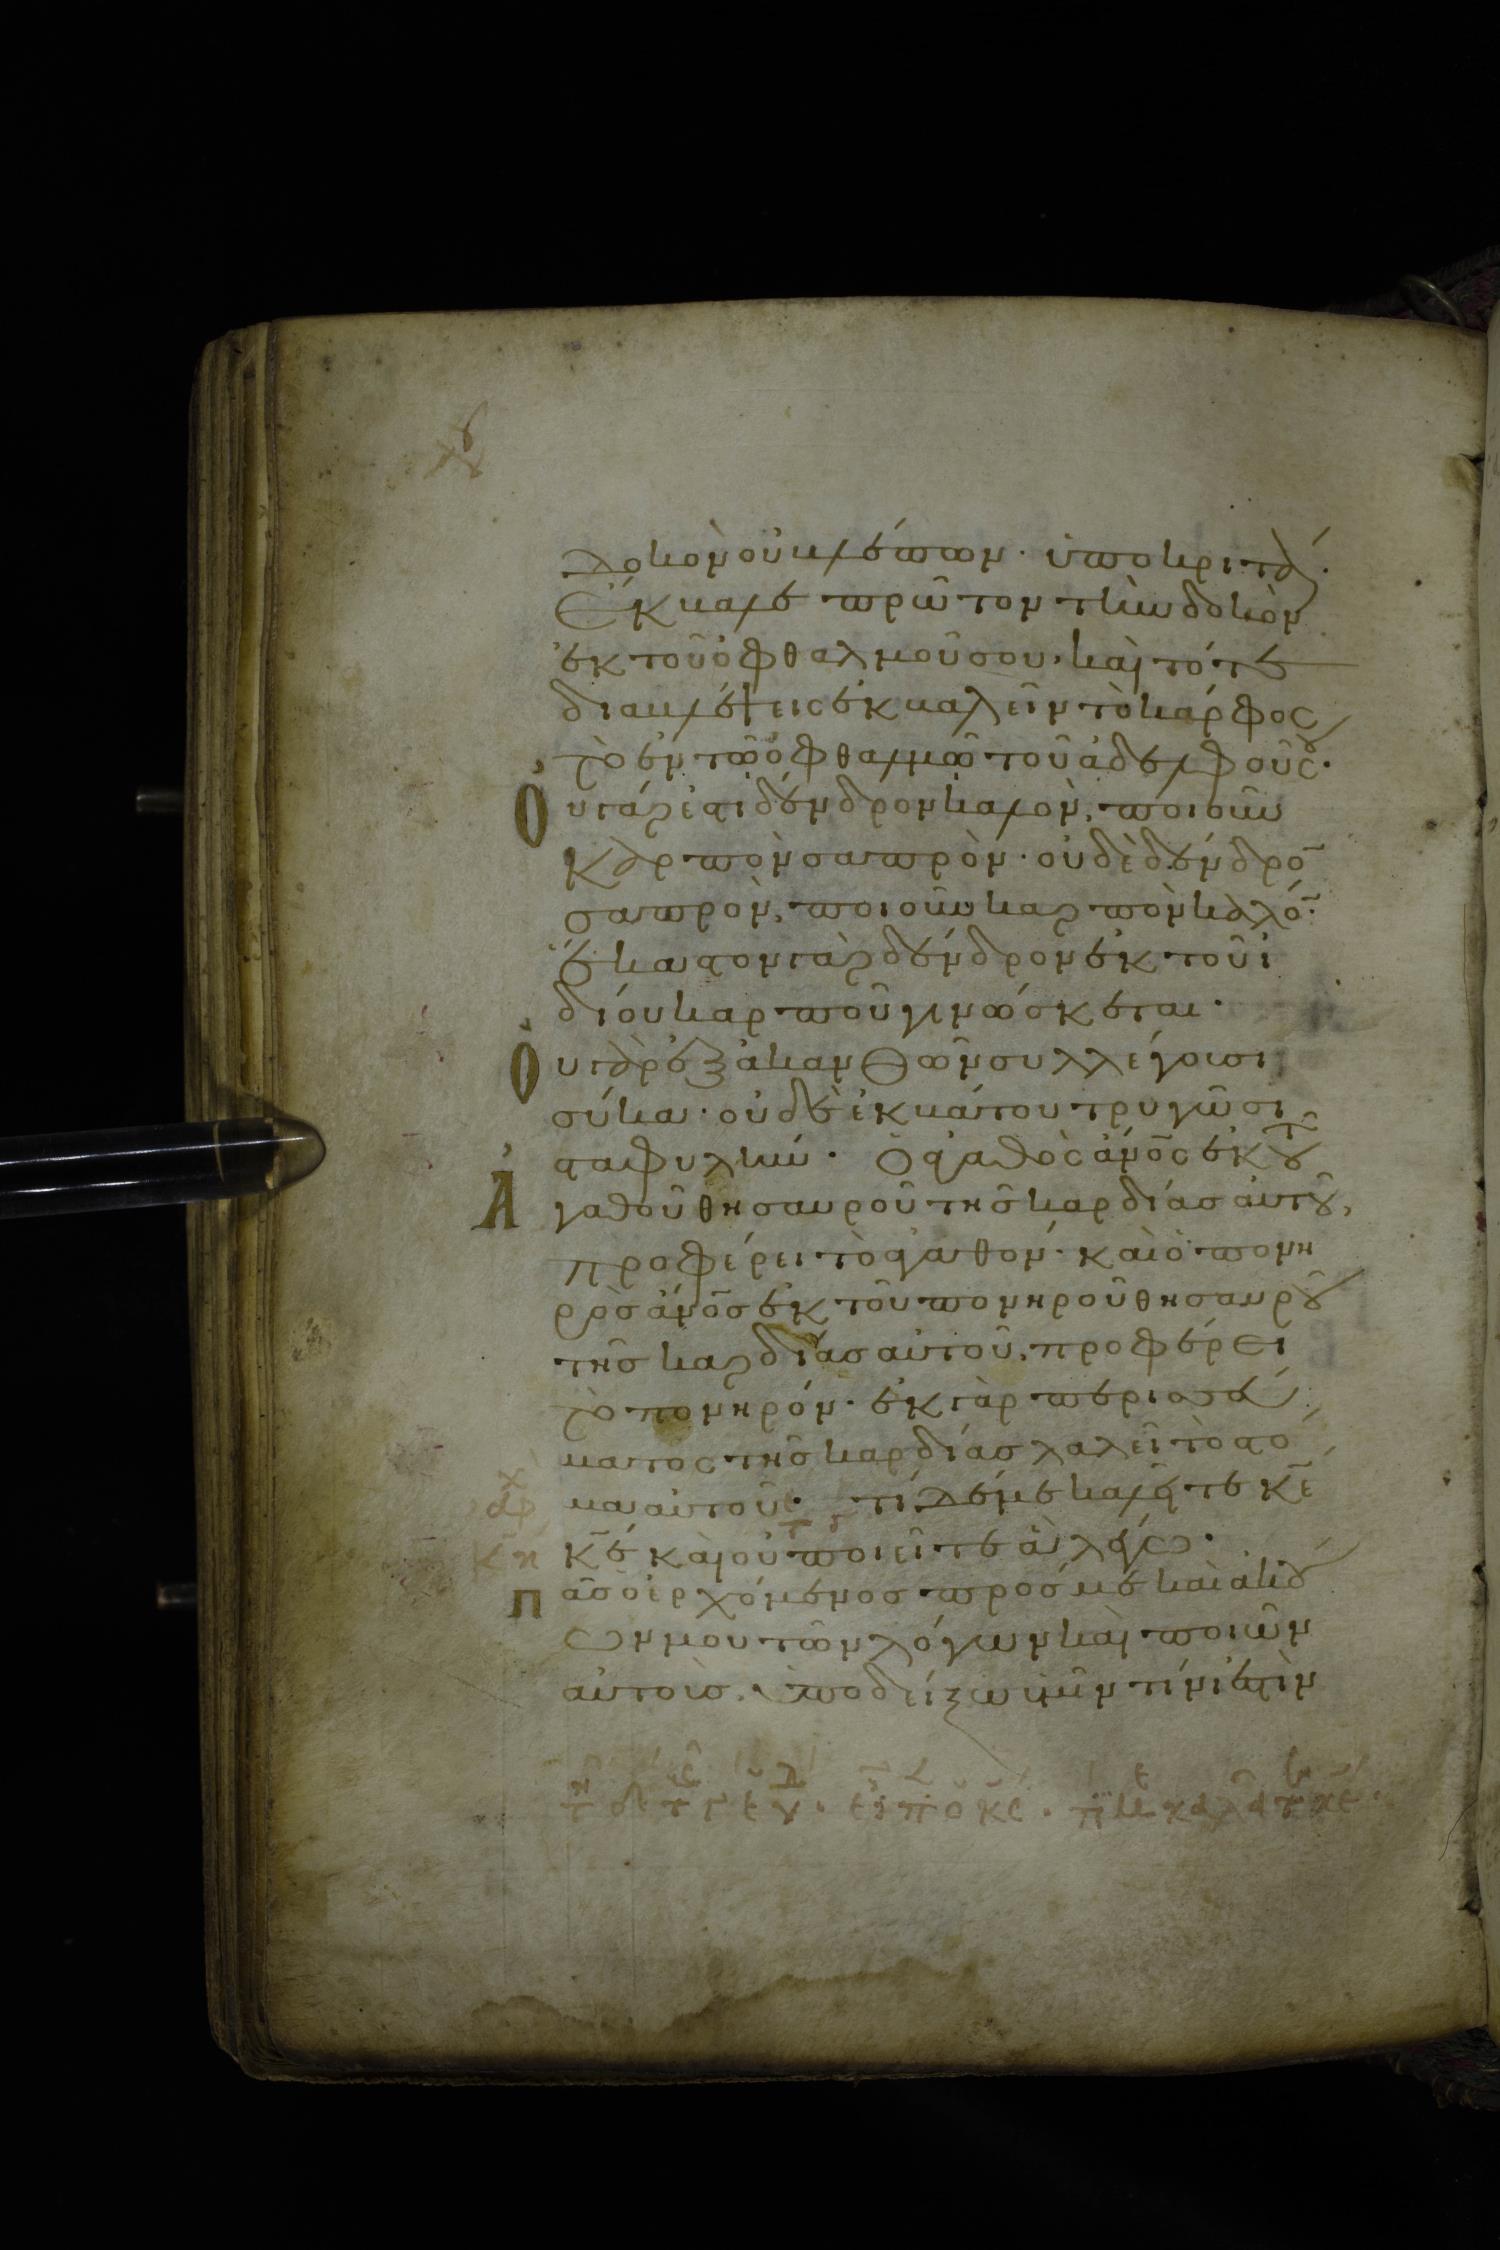 δοκὸν οὐ βλέπων· ὑποκριτά·
Ἔκβαλε πρῶτον τὴν δοκὸν
ἐκ τοῦ ὀφθαλμοῦ σου, καὶ τότε
διαβλέψεις ἐκβαλεῖν τὸ κάρφος
τὸ ἐν τῶ ὀφθαλμῶ τοῦ ἀδελφοῦ σου·
Ὀυ γάρ ἐστι δένδρον καλὸν, ποιοῦν
καρπὸν σαπρὸν· οὐδὲ δένδρο̄
σαπρὸν, ποιοῦν καρπὸν καλό̄·
ἕκαστον γὰρ δένδρον ἐκ τοῦ ἰ
δίου καρποῦ γινώσκεται·
Ὀυ γὰρ ἐξ ἀκανθῶν συλλέγουσι
σύκα· οὐδὲ ἐκ βάτου τρυγῶσι
σταφυλήν· Ὁ ἀγαθὸς ἄνο̄ς ἐκ τοῦ
Ἀγαθοῦ θησαυροῦ τῆς καρδίας αὐτοῦ,
προφέρει τὸ ἀγαθόν· καὶ ὁ πονη
ρὸς ἄνο̄ς ἐκ τοῦ πονηροῦ θησαυροῦ
τῆς καρδίας αὐτοῦ, προφέρει
τὸ πονηρόν· ἐκ γὰρ περισσεύ
ματος τῆς καρδίας λαλεῖ τὸ στό
μα αὐτοῦ· τί δέ με καλεῖτε κ̄ε
κ̄ε καὶ οὐ ποιεῖτε ἃ λέγω·
Πᾶς ὁ ἐρχόμενος πρός με καὶ ἀκού
ων μου τῶν λόγων καὶ ποιῶν
αὐτούς· ὑποδείξω ὑμῖν τίνι ἐστὶν